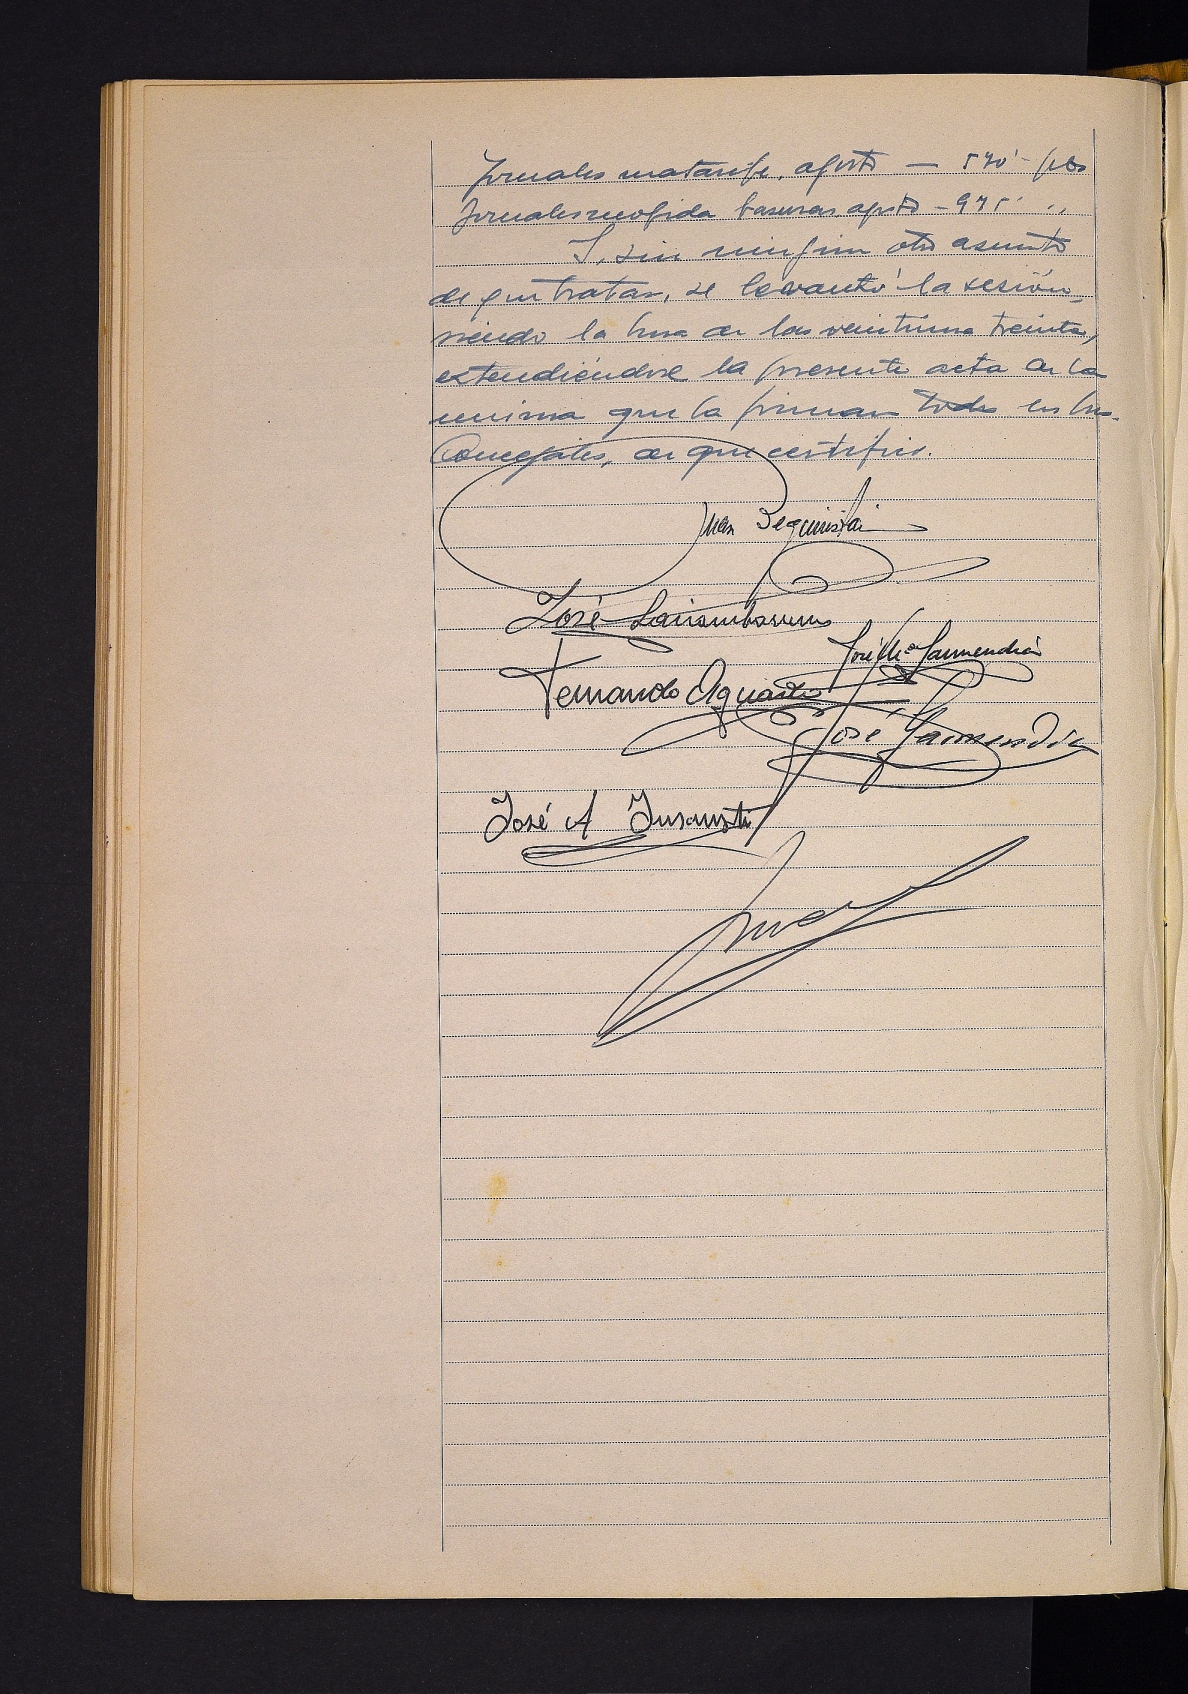 Jornales matarife, agosto — 570'- ptas
Jornales recogida basuras agosto - 975' "
Y, sin ningún otro asunto
de que tratar, se levantó la sesión,
siendo la hora de las veintiuna treinta,
extendiéndose la presente acta de la
misma que la firman todos los Srs.
Concejales, de que certifico.
Juan Beguiristai
José Laria
José Mª Garmendia
Fernando Aguado
José Garmendia
José A Insausti